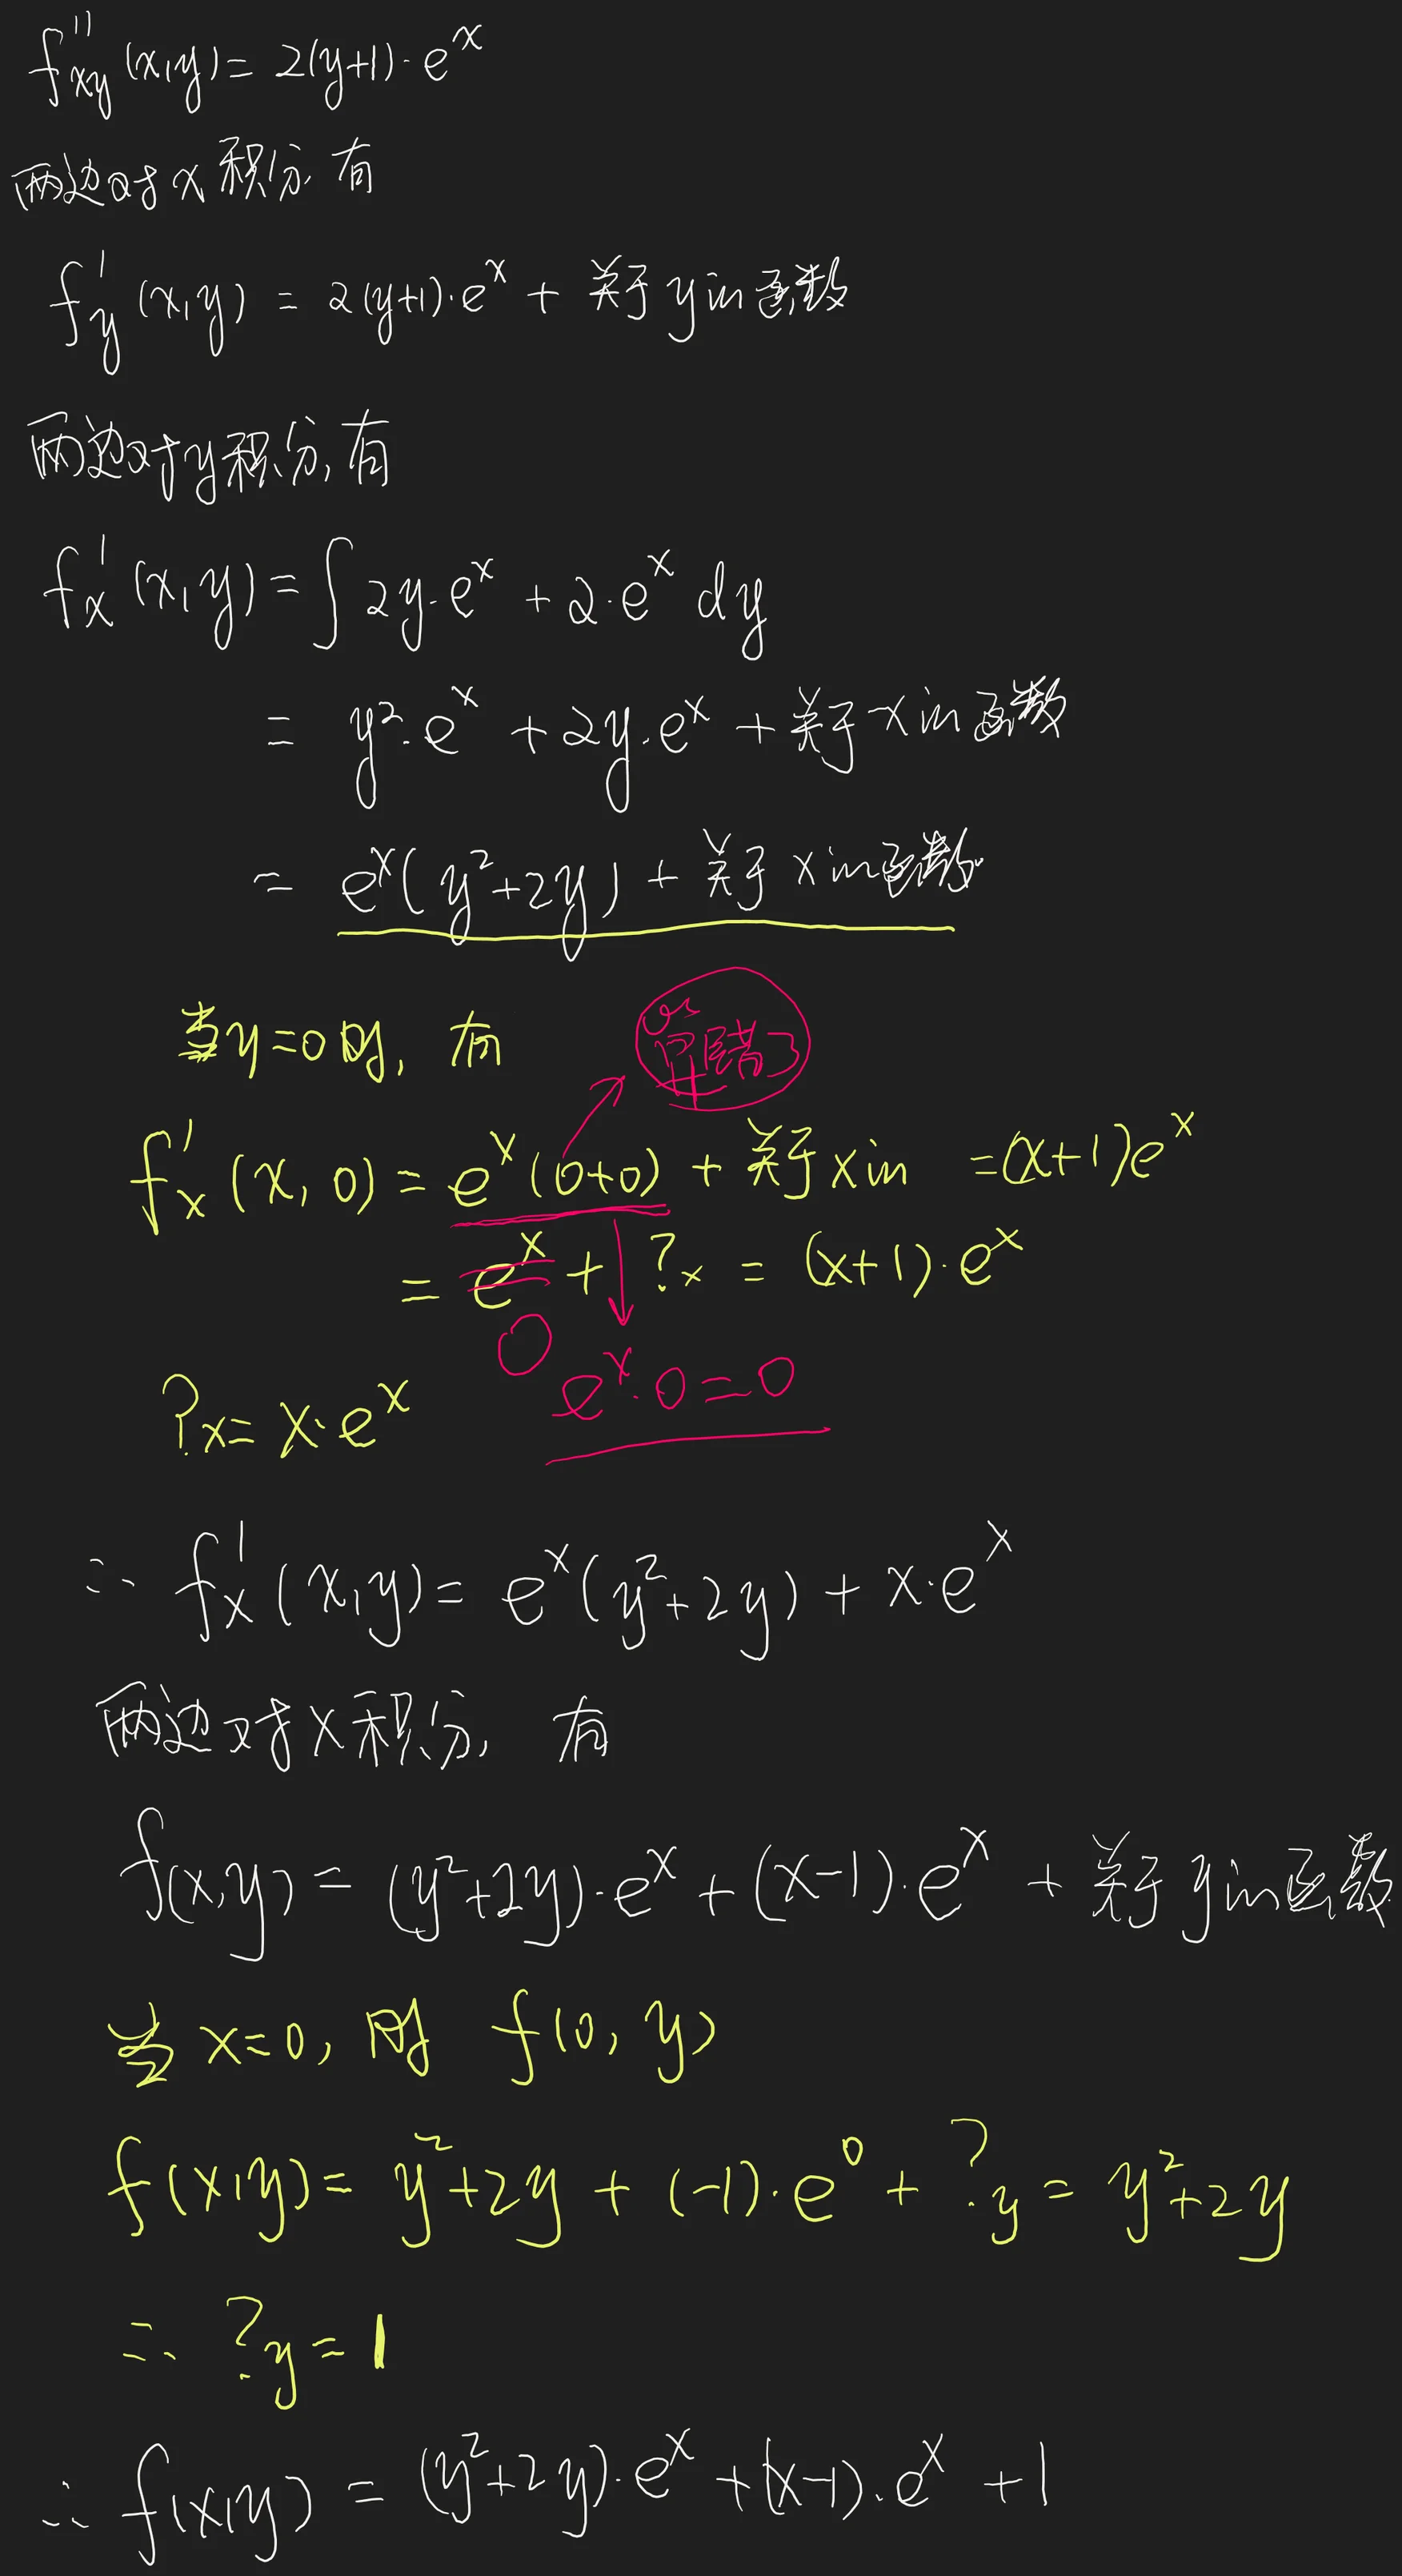 f''xy (x,y) = 2(y+1)·e^x
两边对x积分,有
f'y (x,y) = 2(y+1)·e^x + 关于y的函数
两边对y积分,有
f'x (x,y) = ∫ 2y·e^x + 2·e^x dy
= y²·e^x + 2y·e^x + 关于x的函数
= e^x(y²+2y) + 关于x的函数
当y=0时, 有
算错了
f'x (x, 0) = e^x(0+0) + 关于x的 =(x+1)e^x
= e^x + ?x = (x+1)·e^x
0
e^x·0=0
?x= x·e^x
∴ f'x (x,y) = e^x(y²+2y) + x·e^x
两边对x积分, 有
f(x,y) = (y²+2y)·e^x + (x-1)·e^x + 关于y的函数
当x=0, 时 f(0, y)
f(x,y) = y²+2y + (-1)·e^0 + ?y = y²+2y
∴ ?y = 1
∴ f(x,y) = (y²+2y)·e^x +(x-1)·e^x +1